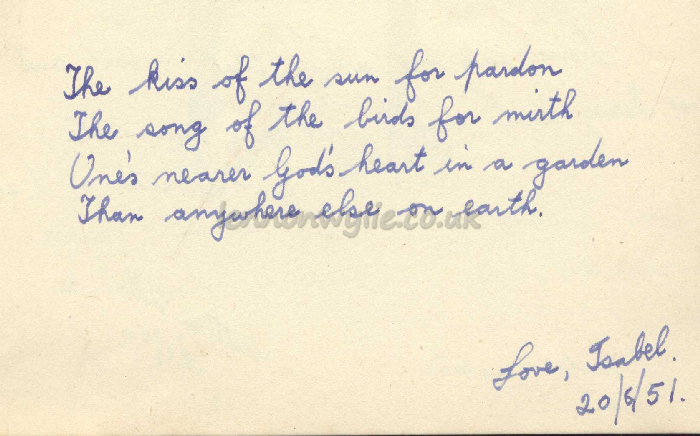 The kiss of the sun for pardon
The song of the birds for mirth
One's nearer God's heart in a garden
Than anywhere else on earth.
lennonwylie.co.uk
Love, Isabel.
20/6/51.